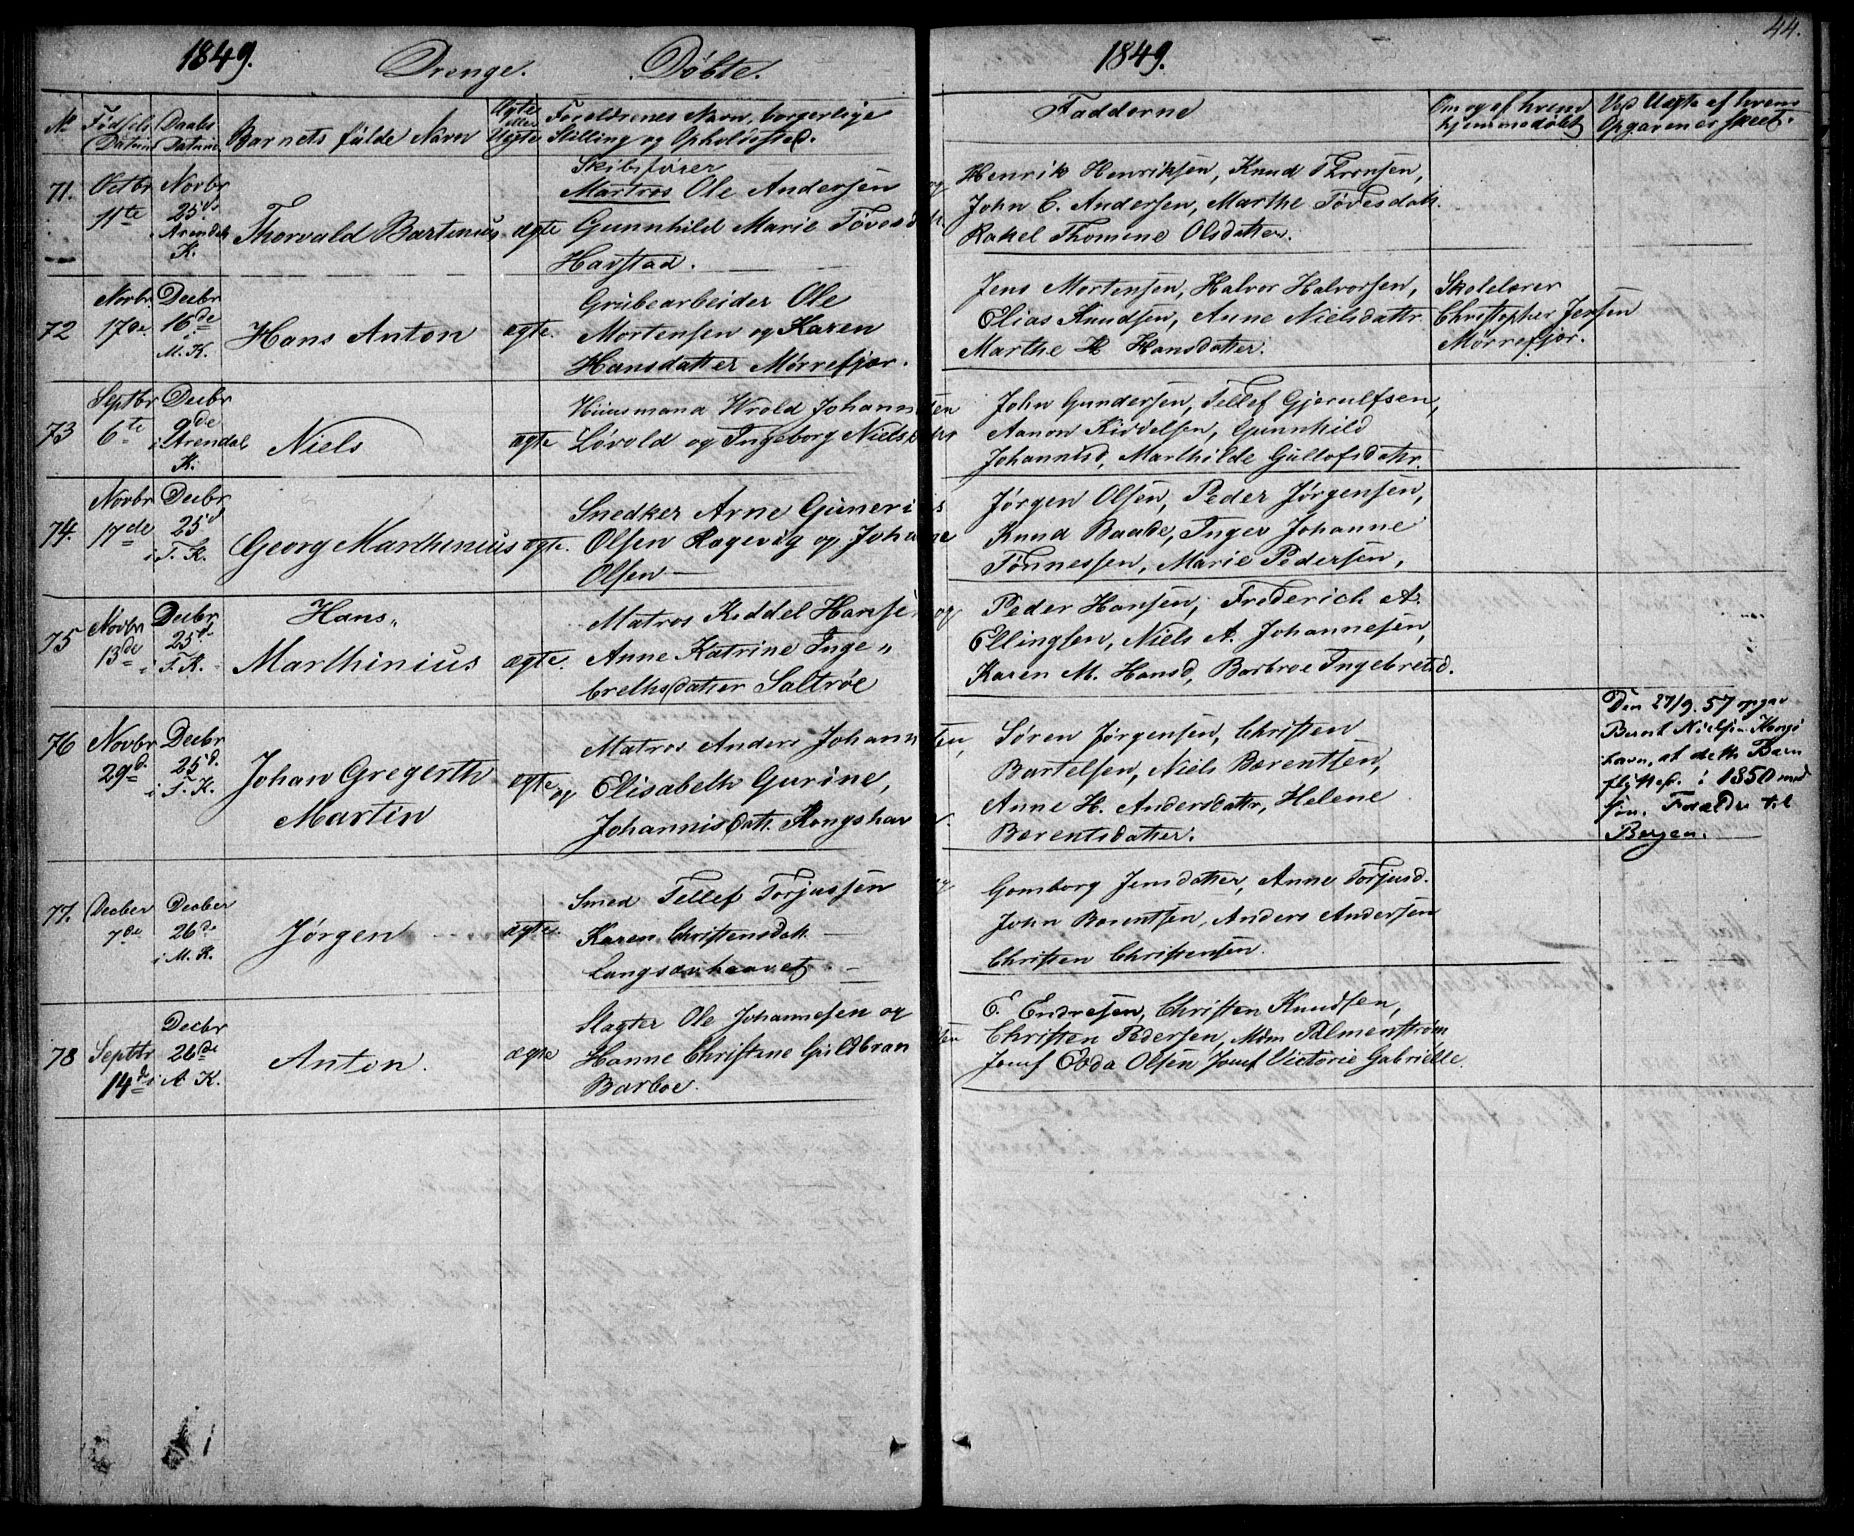 1849. Drenge. Döbte. 1849. 44.
№ Födsels Datum Daabs Datum Barnets fulde Navn Ægte eller Uægte Forældrenes Navn, borgerlige Stilling og Opholdsted. Fadderne Om og af hvem hjemmedøbt Ved Uægte af hvem Opgaven er skeet.
71. Octbr 11te Norbr 25de i Arendals K. Thorvald Bartinius ægte
Skibsfører
Martros Ole Andersen og
Gunnhild Marie Tövesd
Havstad.
Henrik Henriksen, Knud Thronsen,
John C. Andersen, Marthe Tövesdatt.
Rakel Thomine Olsdatter.
72 Novbr. 17de Decbr 16de i M. K. Hans Anton ægte.
Grubearbeider Ole
Mortensen og Karen
Hansdatter Mørrefjær.
Jens Mortensen, Halvor Halvorsen,
Elias Knudsen, Anne Nielsdattr.
Marthe K Hansdatter.
Skolelærer
Christopher Jensen
Mørrefjær.
73 Septbr 6te Decbr 9de i Arendal K. Niels ægte
Huusmand Wrold Johannesen
Løvold og Ingeborg Nielsdatter
John Gundersen, Tellef Gjerulfsen,
Aanon Kiddelsen, Gunnhild
Johannisd, Marthilde Gullofsdattr.
74. Novbr 17de Decbr 25d i T. K. Georg Marthinius ægte.
Snedker Arne Guneri
Olsen Ragevig og Johanne
Olsen
Jørgen Olsen, Peder Jørgensen,
Knud Baade, Inger Johanne
Tönnessen, Marie Pedersen,
75 Novbr 13de Decbr 25d i T. K. Hans Marthinius ægte.
Matros Kiddel Hansen og
Anne Katrine Inge„
brethsdatter Saltrøe
Peder Hansen, Frederich A.
Ellingsen, Niels A. Johannesen,
Karen M. Hansd, Barbroe Ingebretsd.
76 Novbr 29d. Decbr 25d. i T. K. Johan Gregerth Martin ægte
Matros Anders Johannesen,
og Elisabeth Gurine,
Johannisdatt. Kongshavn.
Søren Jørgensen, Christen
Bartelsen, Niels Bærentsen,
Anne H. Andersdattr, Helene
Bærentsdatter.
Den 27/9. 57 opgav
Bernt Nielsen Kongs
havn, at dette Barn
flyttet i 1850 med
sin. Forældre til
Bergen.
77. Decber 7de Decber 26de i M. K. Jørgen ægte.
Smed Tellef Torjussen og
Karen Christensdatt.
Langsævhaavet
Gomborg Jensdatter, Anne Torjusd.
John Barentsen, Anders Andersen
Christen Christensen.
78 Septbr 14de Decbr 26de i A K. Anton. ægte
Slagter Ole Johannesen og
Hanne Christine Guldbransen
Barboe.
E. Endresen, Christen Knudsen,
Christen Pedersen, Mdm Palmenstrøm
Jomf Edda Olsen Jomf Victorie Gabrielle.